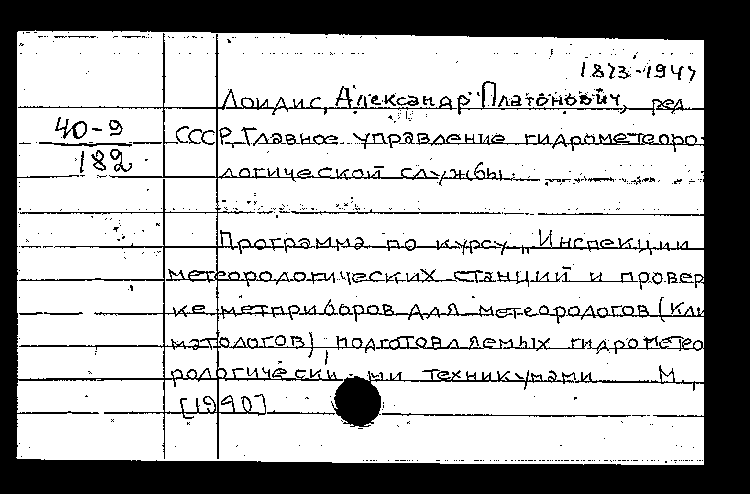 1873-1947
Лоидис, Александр Платонович, ред
40-9
СССР, Главное управление гидрометеоро-
182
логической службы
Программа по курсу „Инспекции
метеорологических станций и провер
ке метприборов для метеорологов (кли
матологов), подготовляемых гидрометео
рологически ми техникумами М.,
[1940]